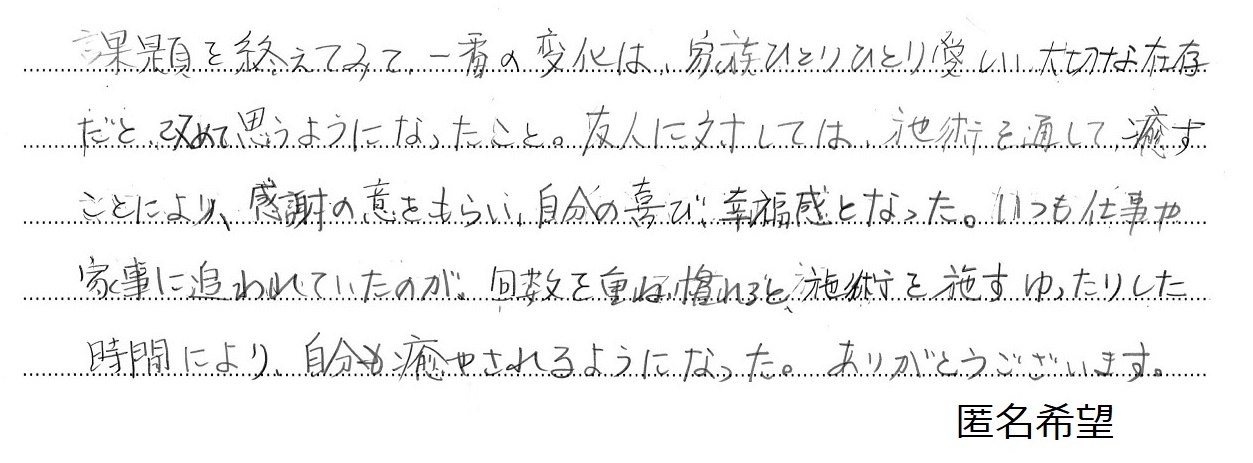 課題を終えてみて、一番の変化は、家族ひとりひとり愛しい大切な存在
だと、改めて思うようになったこと。友人に対しては、施術を通して、癒す
ことにより、感謝の意をもらい、自分の喜び、幸福感となった。いつも仕事や
家事に追われていたのが、回数を重ね慣れると、施術を施すゆったりした
時間により、自分も癒やされるようになった。ありがとうございます。
匿名希望